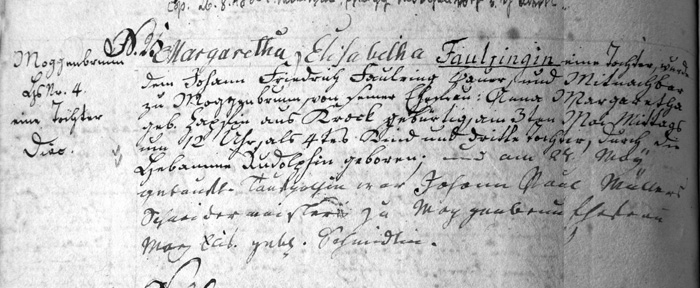 Moggenbrunn
HsNr. 4.
eine Tochter
N. 13 Margaretha Elisabetha Faulzingin eine Tochter, wurde
dem Johann Friedrich Faulring Bauer, und Mitnachbar
zu Moggenbrunn, von seiner Ehefrau: Anna Margaretha
geb. aus Rock gebürtig, am 3ten May Mittags
um 12 Uhr, als 4tes Kind und dritte Tochter, durch die
Hebamme Rudolphin geboren; und am May
getauft. Taufpathin war Johann Paul Müllers
Schneidermeisters zu Moggenbrunn Ehefrau
Marg. Elis. geb. Schmidtin.